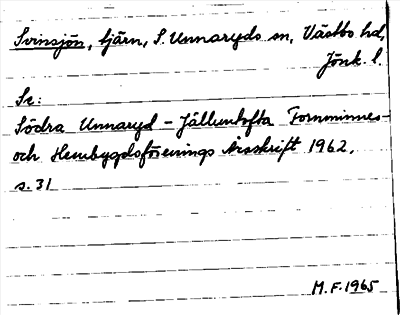 Svinsjön, tjärn, S. Unnaryds sn, Västbo hd,
Jönk. l.
Se:
Södra Unnaryd - Jälluntofta Fornminnes-
och Hembygdsförenings Årsskrift 1962,
s. 31
M.F. 1965